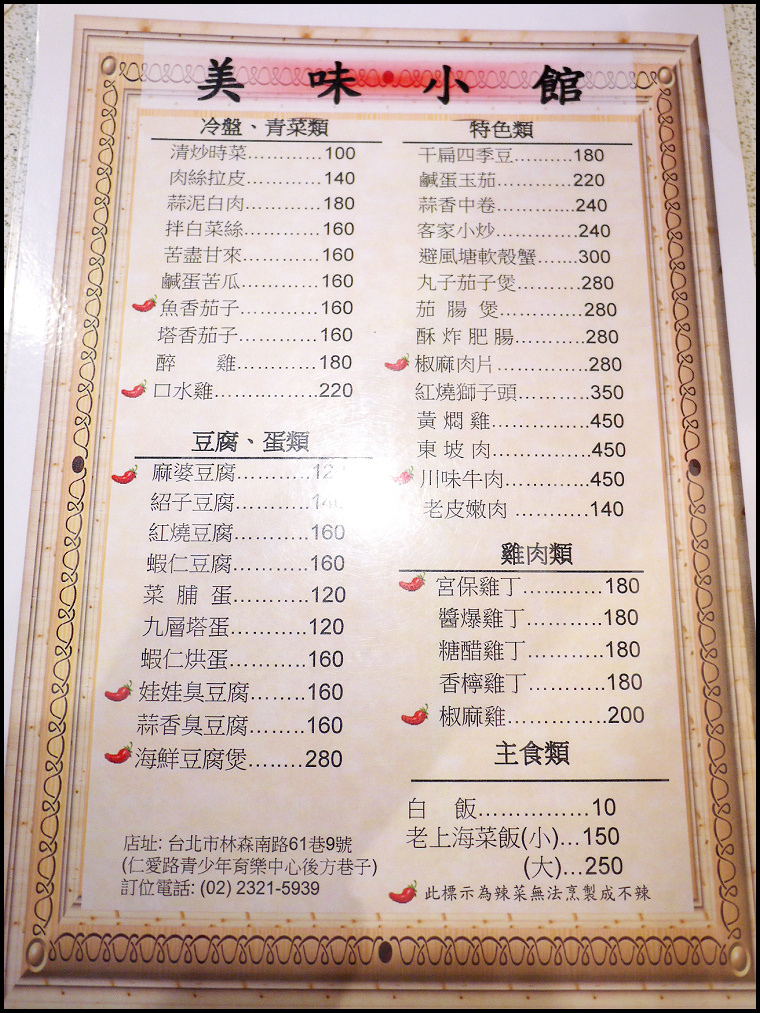 美味小館
冷盤、青菜類
清炒時菜............100
肉絲拉皮............140
蒜泥白肉............180
拌白菜絲............160
苦盡甘來............160
鹹蛋苦瓜............160
魚香茄子............160
塔香茄子............160
醉 雞............180
口水雞................220
豆腐、蛋類
麻婆豆腐............12
紹子豆腐............140
紅燒豆腐............160
蝦仁豆腐............160
菜脯蛋............120
九層塔蛋............120
蝦仁烘蛋............160
娃娃臭豆腐........160
蒜香臭豆腐........160
海鮮豆腐煲........280
店址: 台北市林森南路61巷9號
(仁愛路青少年育樂中心後方巷子)
訂位電話: (02) 2321-5939
特色類
干扁四季豆..........180
鹹蛋玉茄............220
蒜香中卷............240
客家小炒............240
避風塘軟殼蟹.......300
丸子茄子煲..........280
茄腸煲............280
酥炸肥腸............280
椒麻肉片............280
紅燒獅子頭..........350
黃燜雞............450
東坡肉............450
川味牛肉............450
老皮嫩肉............140
雞肉類
宮保雞丁............180
醬爆雞丁............180
糖醋雞丁............180
香檸雞丁............180
椒麻雞...............200
主食類
白 飯...............10
老上海菜飯(小)...150
(大)...250
此標示為辣菜無法烹製成不辣